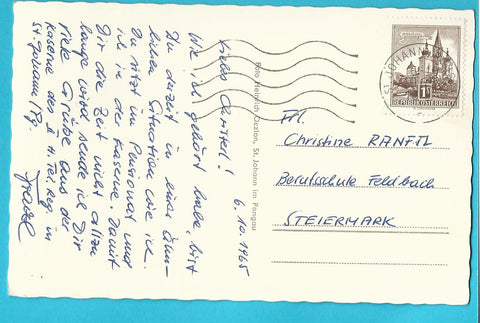 6.10.1965
Liebe Christl!
Wie ich gehört habe, bist
Du derzeit in einer ähn-
lichen Situation wie ich.
Du sitzt im Pensionat und
ich in der Kaserne. Damit
Dir die Zeit nicht allzu
lange wird sende ich Dir
viele Grüße aus der
Kaserne des II. H. Tel. Reg. in
St. Johann /Pg.
Foto Heinrich Oczlon, St. Johann im Pongau
ST. JOHANN
1S
REPUBLIK ÖSTERREICH
Frl.
Christine RANFTL
Berufschule Feldbach
STEIERMARK